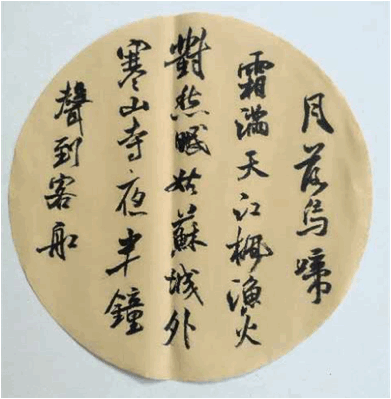 月落烏啼
霜滿天江楓漁火
對愁眠姑蘇城外
寒山寺夜半鐘
聲到客船